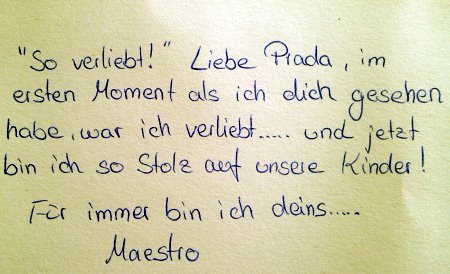 "So verliebt!" Liebe Prada, im
ersten Moment als ich dich gesehen
habe, war ich verliebt..... und jetzt
bin ich so Stolz auf unsere Kinder!
Für immer bin ich deins.....
Maestro